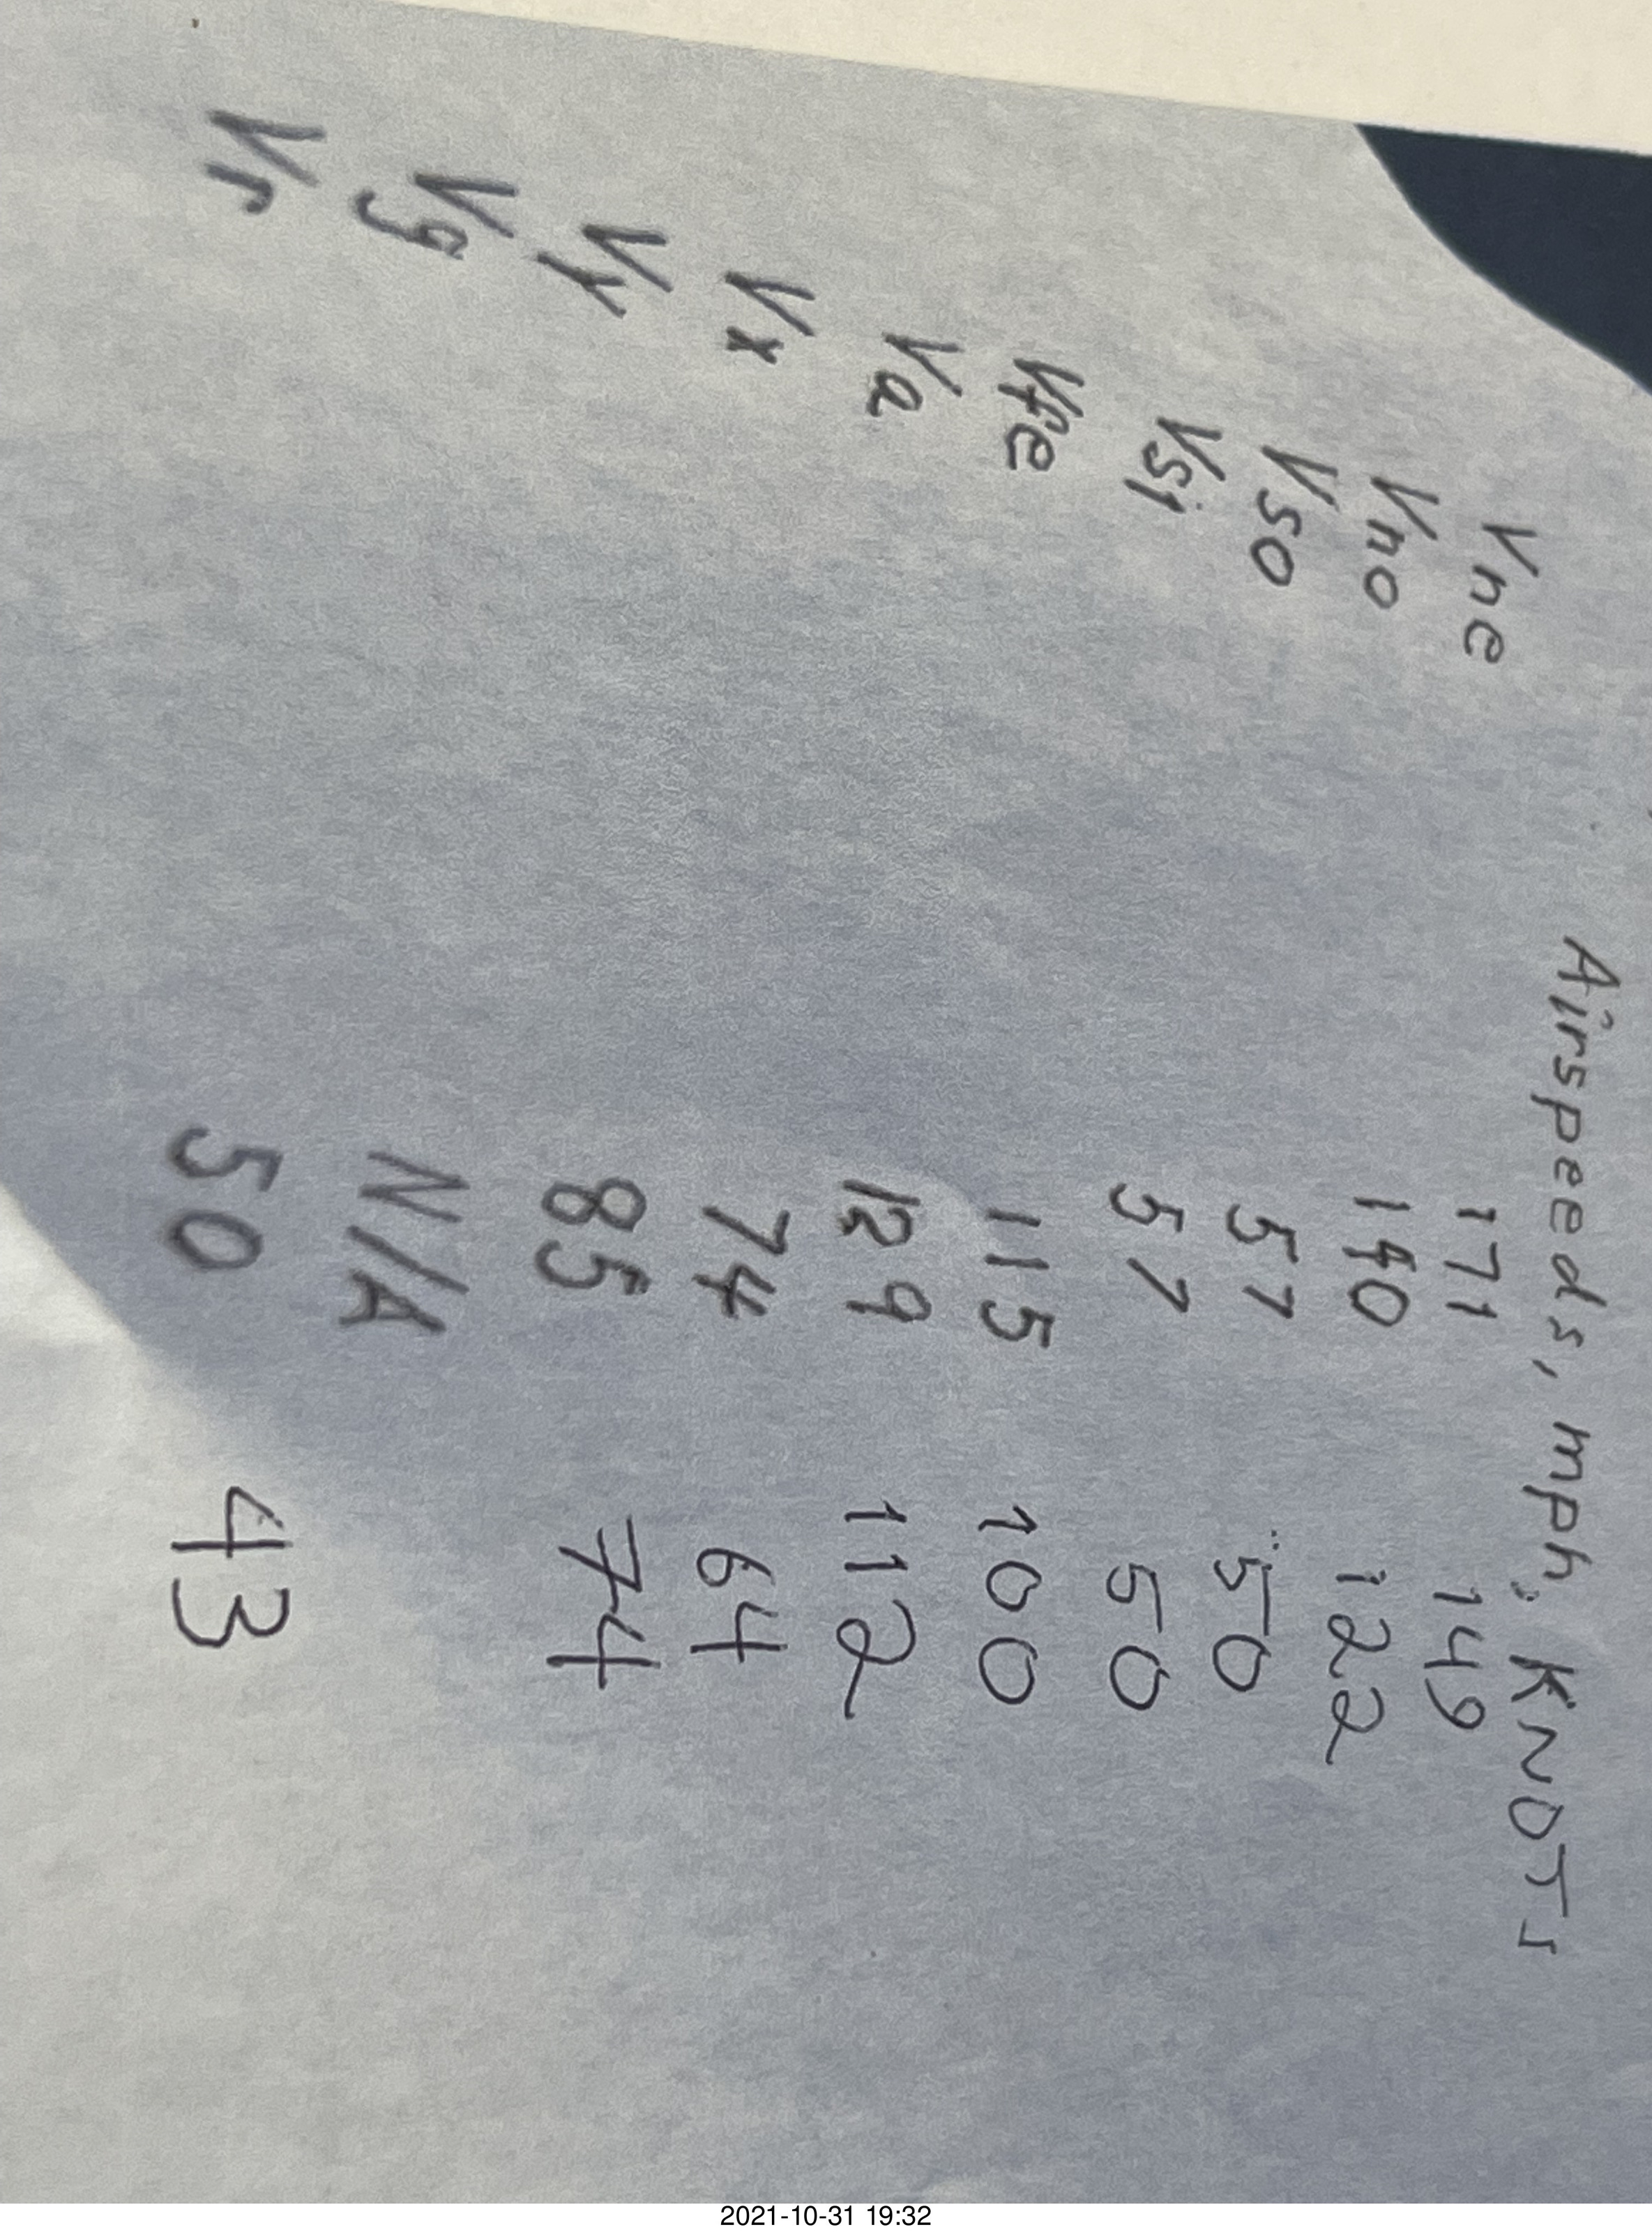 Airspeeds, mph, KNOTS
Vne 171 149
Vno 140 122
Vso 57 50
Vs1 57 50
Vfe 115 100
Va 129 112
Vx 74 64
Vy 85 74
Vg N/A
Vr 50 43
2021-10-31 19:32